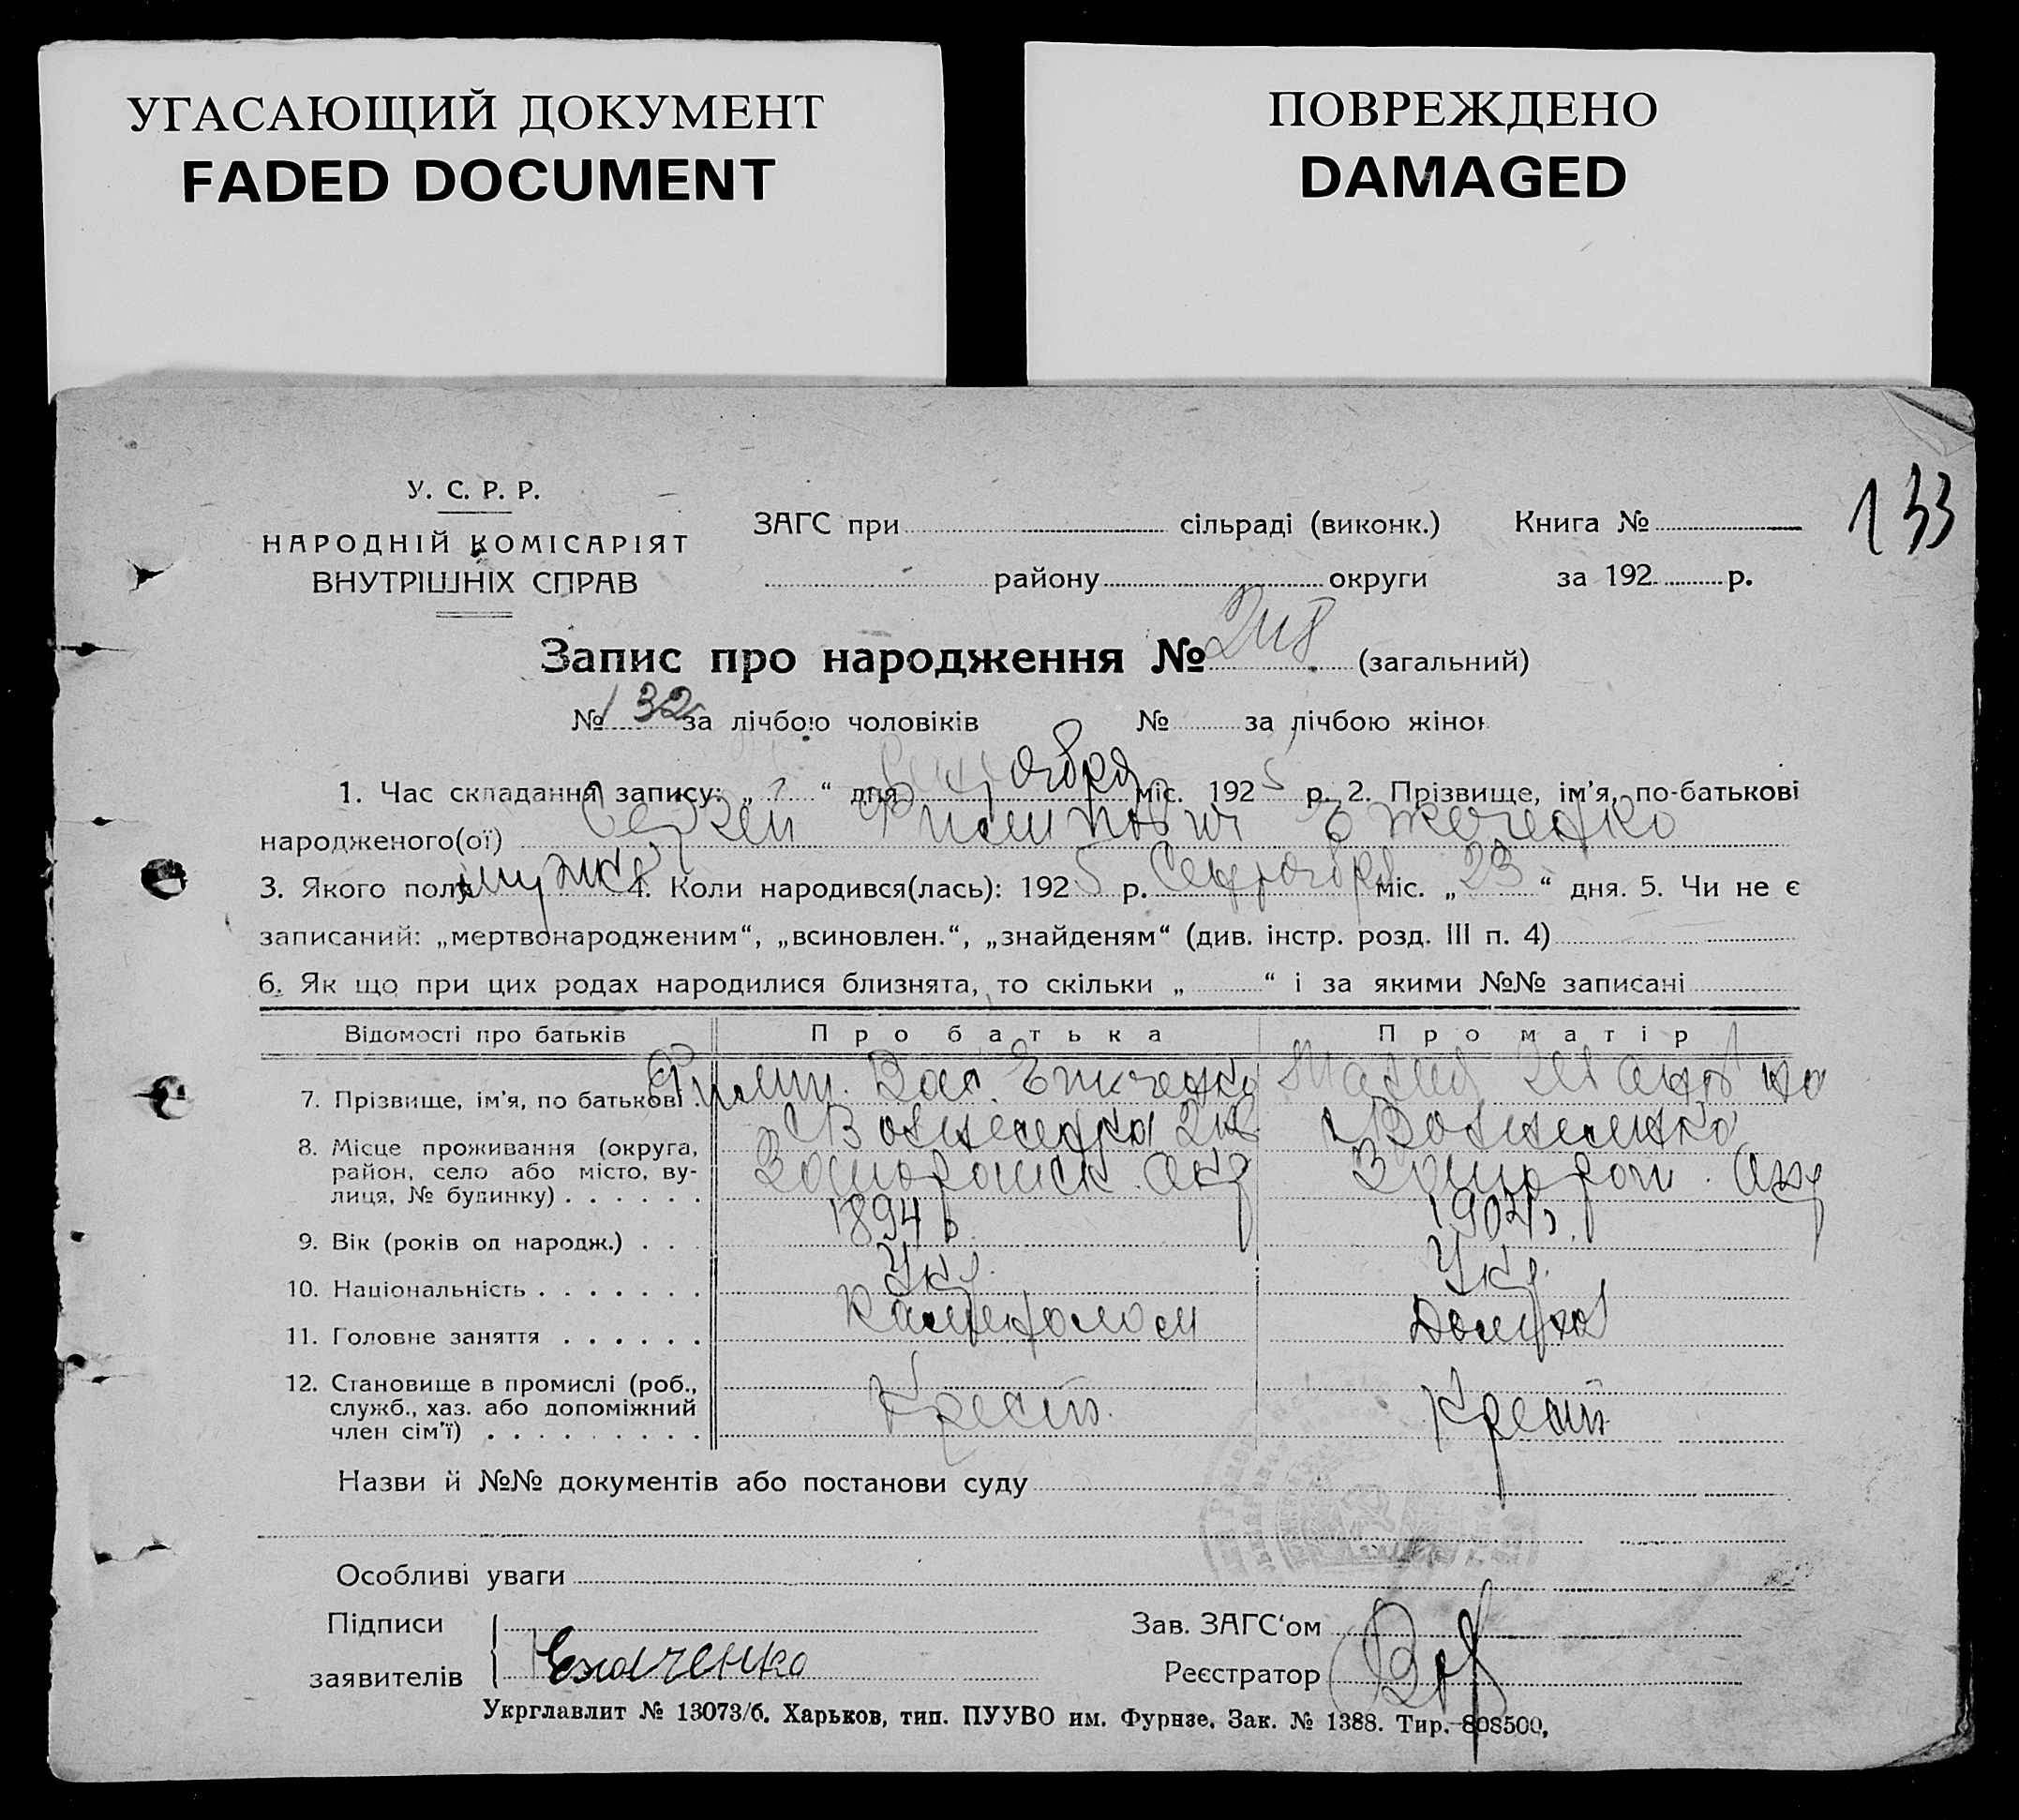 УГАСАЮЩИЙ ДОКУМЕНТ
FADED DOCUMENT
ПОВРЕЖДЕНО
DAMAGED
133
У. С. Р. Р.
НАРОДНІЙ КОМІСАРІЯТ
ВНУТРІШНІХ СПРАВ
ЗАГС при сільраді (виконк.) Книга №
району округи за 192 р.
Запис про народження № (загальний)
№ 132 за лічбою чоловіків № за лічбою жінок
1. Час складання запису: „ “ дня міс. 1925 р. 2. Прізвище, ім'я, по-батькові
народженого(ої) Сергей Филиппович
3. Якого полу мужск 4. Коли народився(лась): 1925 р. Сентября міс. „23“ дня. 5. Чи не є
записаний: „мертвонародженим“, „всиновлен.“, „знайденям“ (див. інстр. розд. III п. 4)
6. Як що при цих родах народилися близнята, то скільки „ “ і за якими №№ записані
Відомості про батьків Про батька Про матір
7. Прізвище, ім'я, по батькові. Филип. Вас.
8. Місце проживання (округа, Вознесенка Вознесенка
район, село або місто, ву- Запорожск. окр Запорож. окр
лиця, № будинку)
9. Вік (років од народж.) 1894 г. 1904 г.
10. Національність Укр. Укр.
11. Головне заняття Каменолом Домохоз
12. Становище в промислі (роб.,
служб., хаз. або допоміжний Крест. Крест.
член сім'ї)
Назви й №№ документів або постанови суду
Особливі уваги
Підписи Зав. ЗАГС‘ом
заявителів Ежаченко Реєстратор
Укрглавлит № 13073/б. Харьков, тип. ПУУВО им. Фурнзе. Зак. № 1388. Тир. 808500,